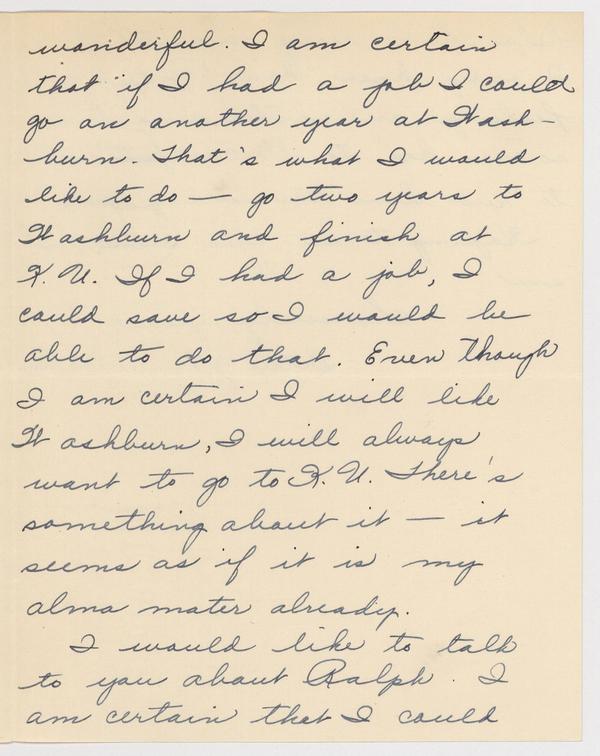 wonderful. I am certain
that if I had a job I could
go on another year at Wash-
burn. That's what I would
like to do — go two years to
Washburn and finish at
K. U. If I had a job, I
could save so I would be
able to do that. Even though
I am certain I will like
Washburn, I will always
want to go to K. U. There's
something about it — it
seems as if it is my
alma mater already.
I would like to talk
to you about Ralph. I
am certain that I could